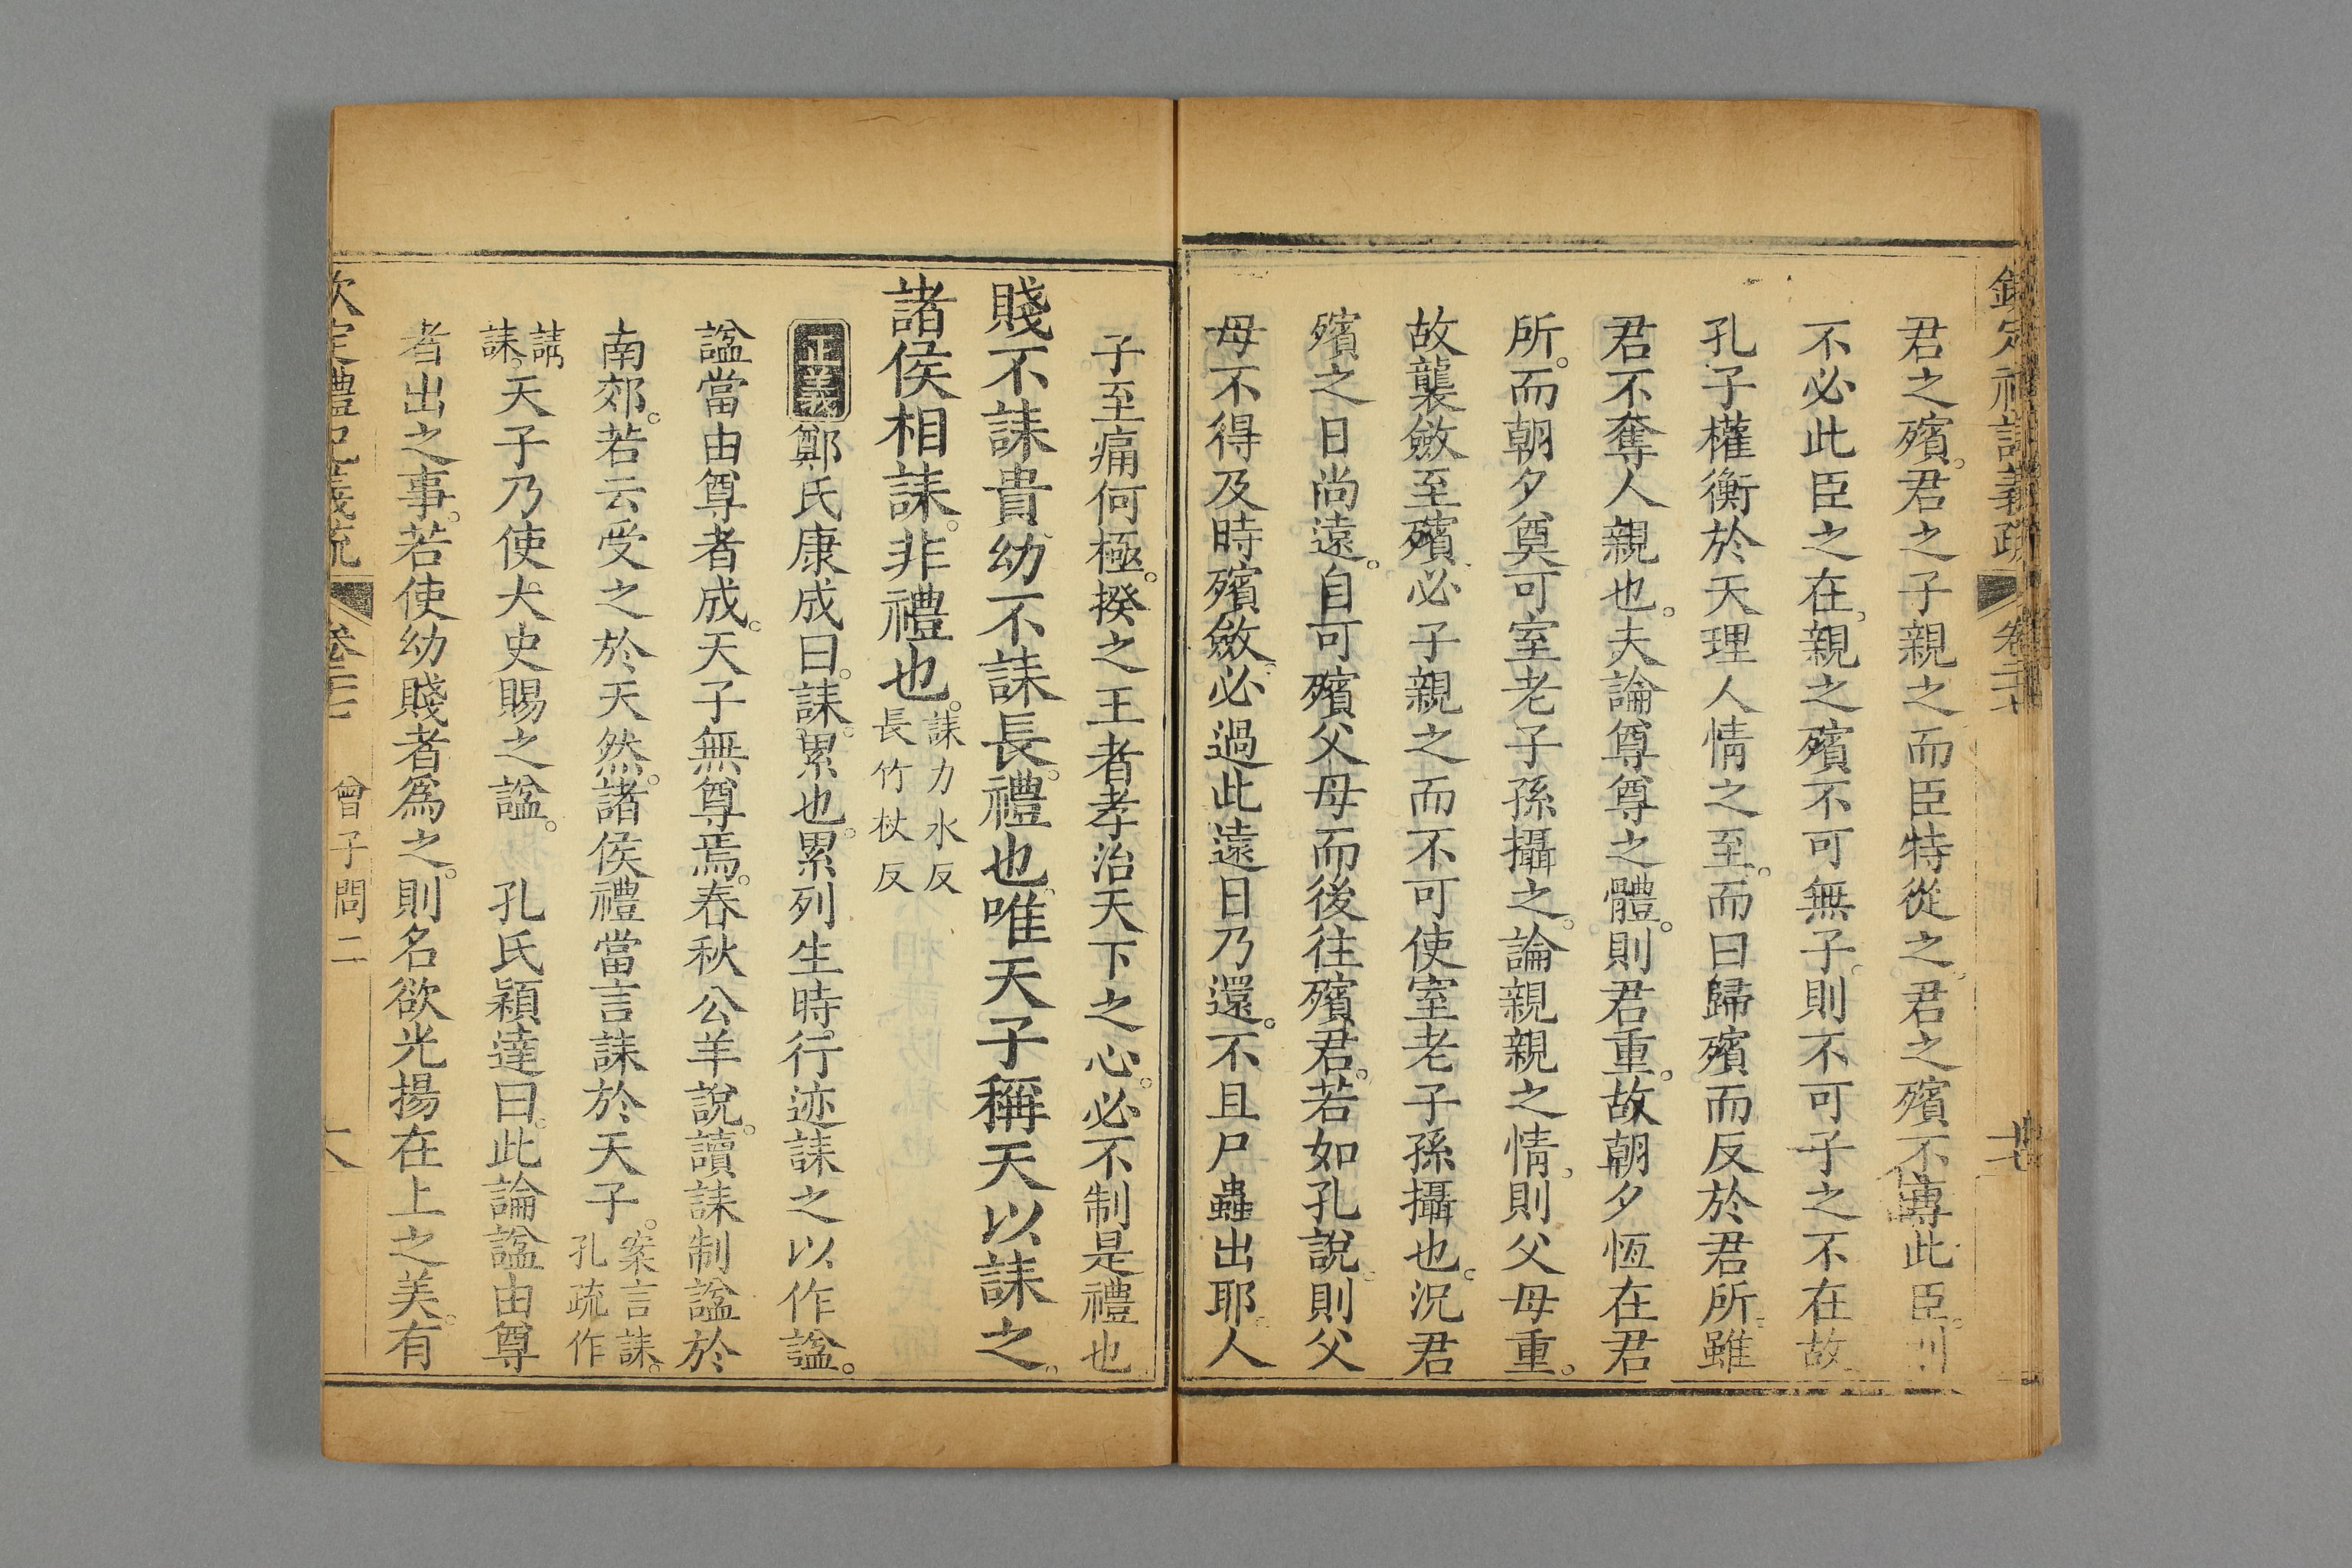 君之殯。君之子親之而臣特從之。君之殯不專此臣。則
不必此臣之在。親之殯不可無子。則不可子之不在故
孔子權衡於天理人情之至。而曰歸殯而反於君所。雖
君不奪人親也。夫論尊尊之體。則君重。故朝夕恆在君
所。而朝夕奠可室老子孫攝之。論親親之情。則父母重。
故襲斂至殯必子親之而不可使室老子孫攝也。況君
殯之日尚遠。自可殯父母而後往殯君。若如孔說。則父
母不得及時殯斂。必過此遠日乃還。不且尸蟲出耶。人
子至痛何極。揆之王者孝治天下之心。必不制是禮也
賤不誄貴。幼不誄長。禮也。唯天子稱天以誄之。
諸侯相誄。非禮也。誄力水反
長竹杖反
正義鄭氏康成曰。誄。累也。累列生時行迹誄之以作諡。
諡當由尊者成。天子無尊焉。春秋公羊說。讀誄制諡於
南郊。若云受之於天然。諸侯禮當言誄於天子。案言誄。
孔疏作
請
誄。天子乃使大史賜之諡。 孔氏穎達曰。此論諡由尊
者出之事。若使幼賤者爲之。則名欲光揚在上之美。有
欽定禮記義疏 卷二十七 曾子問二